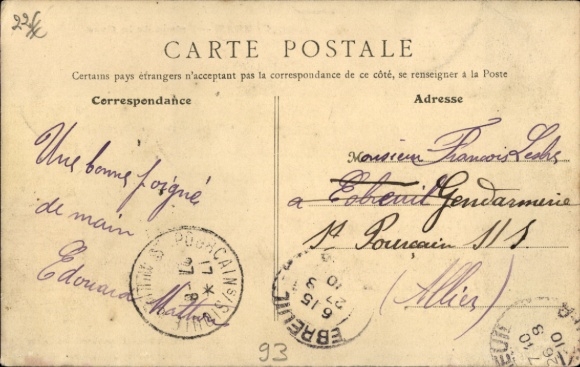 CARTE POSTALE
Certains pays étrangers n'acceptant pas la correspondance de ce côté, se renseigner à la Poste
Correspondance
Adresse
Une bonne poigné
de main
Edouard
Monsieur Francois
a Ebreuil Gendarmerie
St Pourcain S/S
(Allier)
ST POURCAIN S/SIOULE
EBREUIL
6 15
27 3
10
93